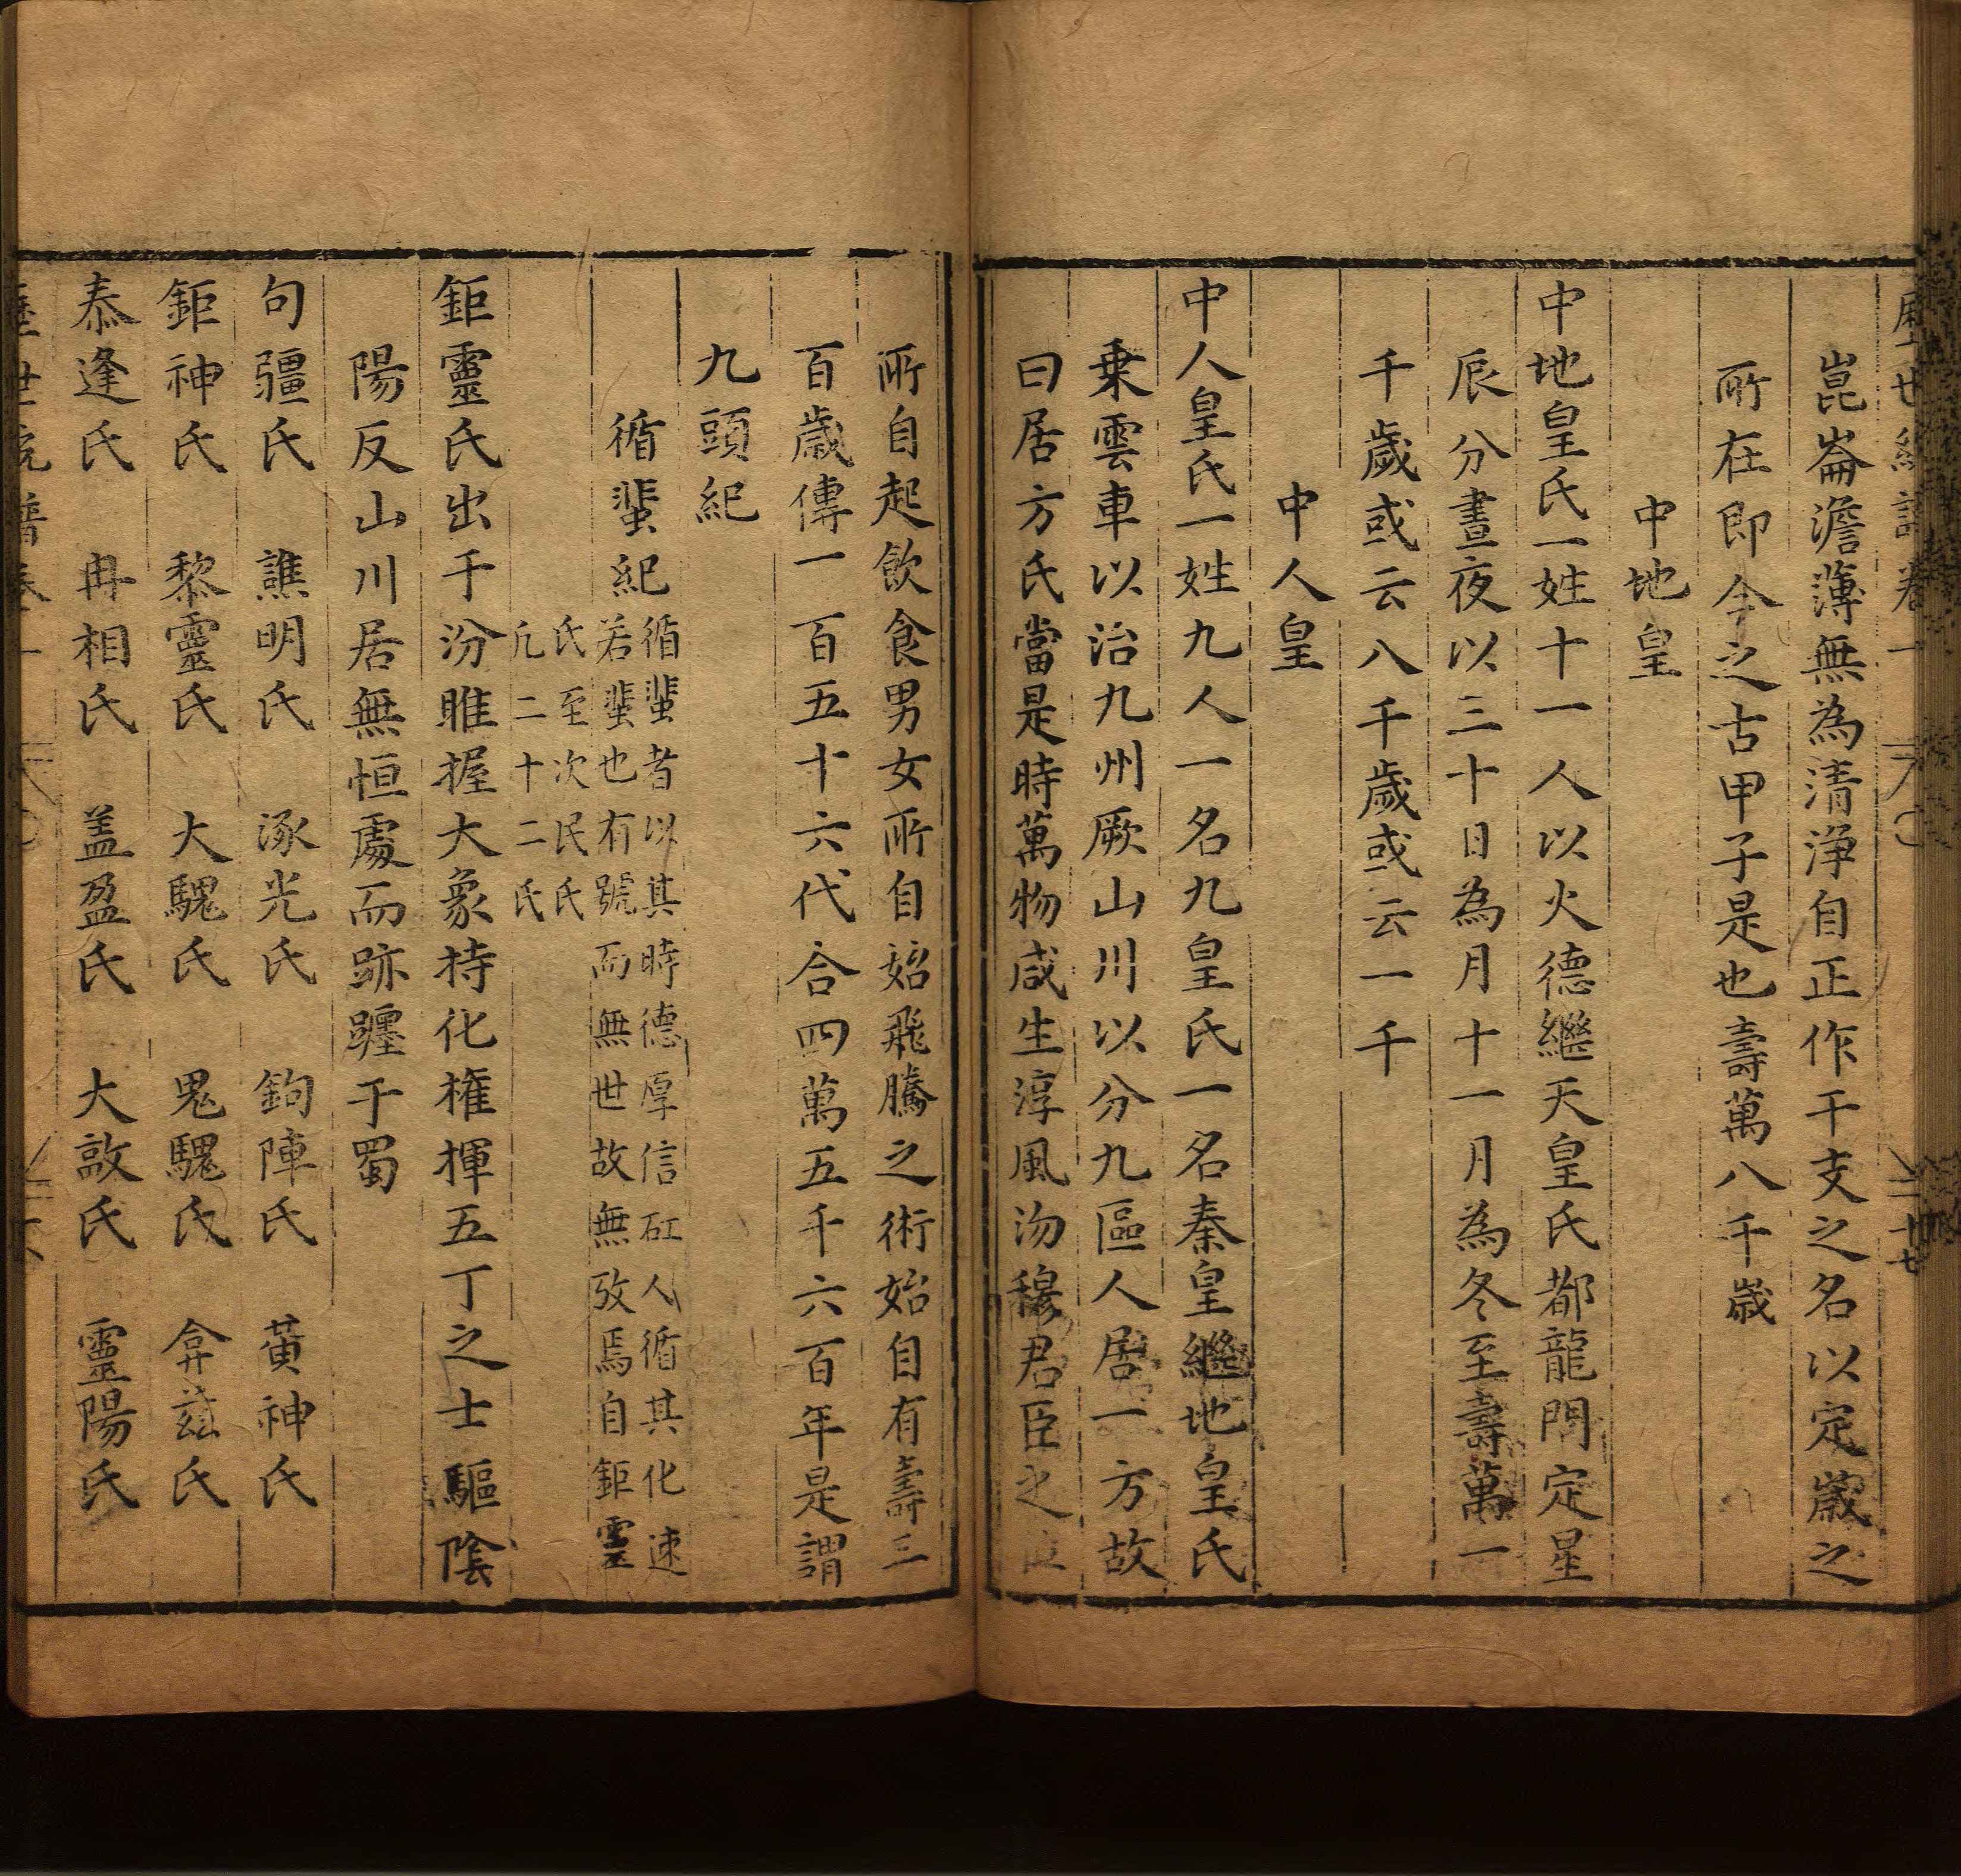 崑崙澹薄無為清浄自正作干支之名以定歳之
所在即今之古甲子是也壽萬八千歳
中地皇
中地皇氏一姓十一人以火德繼天皇氏都龍門定星
辰分晝夜以三十日為月十一月為冬至壽萬一
千歳或云八千歳或云一千
中人皇
中人皇氏一姓九人一名九皇氏一名秦皇繼地皇氏
乗雲車以治九州厥山川以分九區人居一方故
曰居方氏當是時萬物咸生淳風沕穆君臣之
所自起飲食男女所自始飛騰之術始自有壽三
百歳傳一百五十六代合四萬五千六百年是謂
九頭紀
循蜚紀
循蜚者以其時德厚信矼人循其化速
若蜚也有號而無世故無攷焉自鉅靈
氏至次民氏
凢二十二氏
鉅靈氏出于汾睢握大象持化權揮五丁之士驅陰
陽反山川居無恒處而跡躔于蜀
句彊氏　譙明氏　涿光氏　鉤陣氏　黃神氏
鉅神氏　黎靈氏　大騩氏　鬼騩氏　弇茲氏
泰逢氏　冉相氏　盖盈氏　大敦氏　靈陽氏